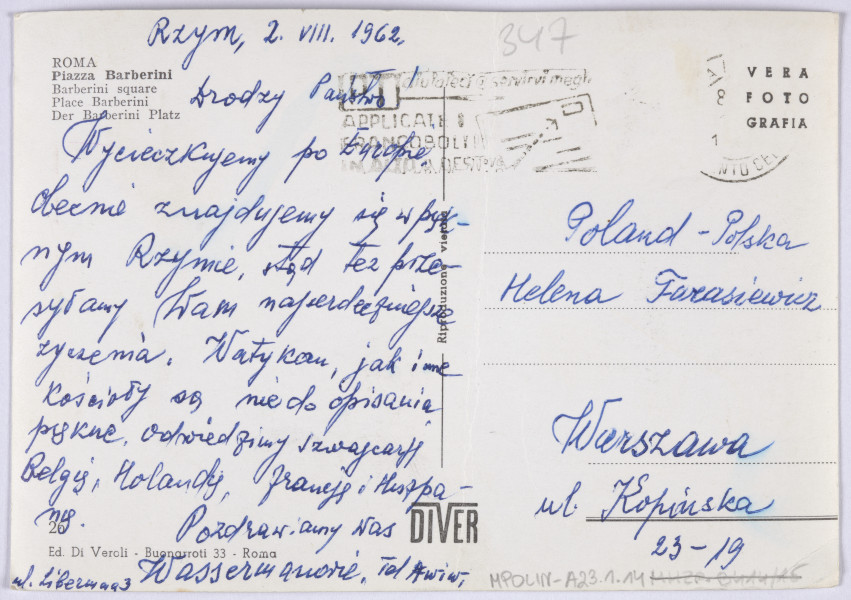 Rzym, 2. VIII. 1962.
347
ROMA
Piazza Barberini
Barberini square
Place Barberini
Der Barberini Platz
Drodzy Państwo!
aiutateci a servirvi meglio
APPLICATE I
FRANCOBOLLI
IN ALTO A DESTRA
VERA
FOTO
GRAFIA
Wycieczkujemy po Europie,
obecnie znajdujemy się w pięk-
nym Rzymie, stąd też prze-
syłamy Wam najserdeczniejsze
życzenia. Watykan, jak i inne
kościoły są nie do opisania
piękne, odwiedzimy Szwajcarję
Belgię, Holandię, Francję i Hiszpa-
nię.
Pozdrawiamy Was
Wassermanowie, Tel Awiw,
ul. Liberman 3
26
Ed. Di Veroli - Buonarroti 33 - Roma
Riproduzione vietata
DIVER
Poland - Polska
Helena Tarasiewicz
Warszawa
ul. Kopińska
23-19
MPOLIN-A23.1.14